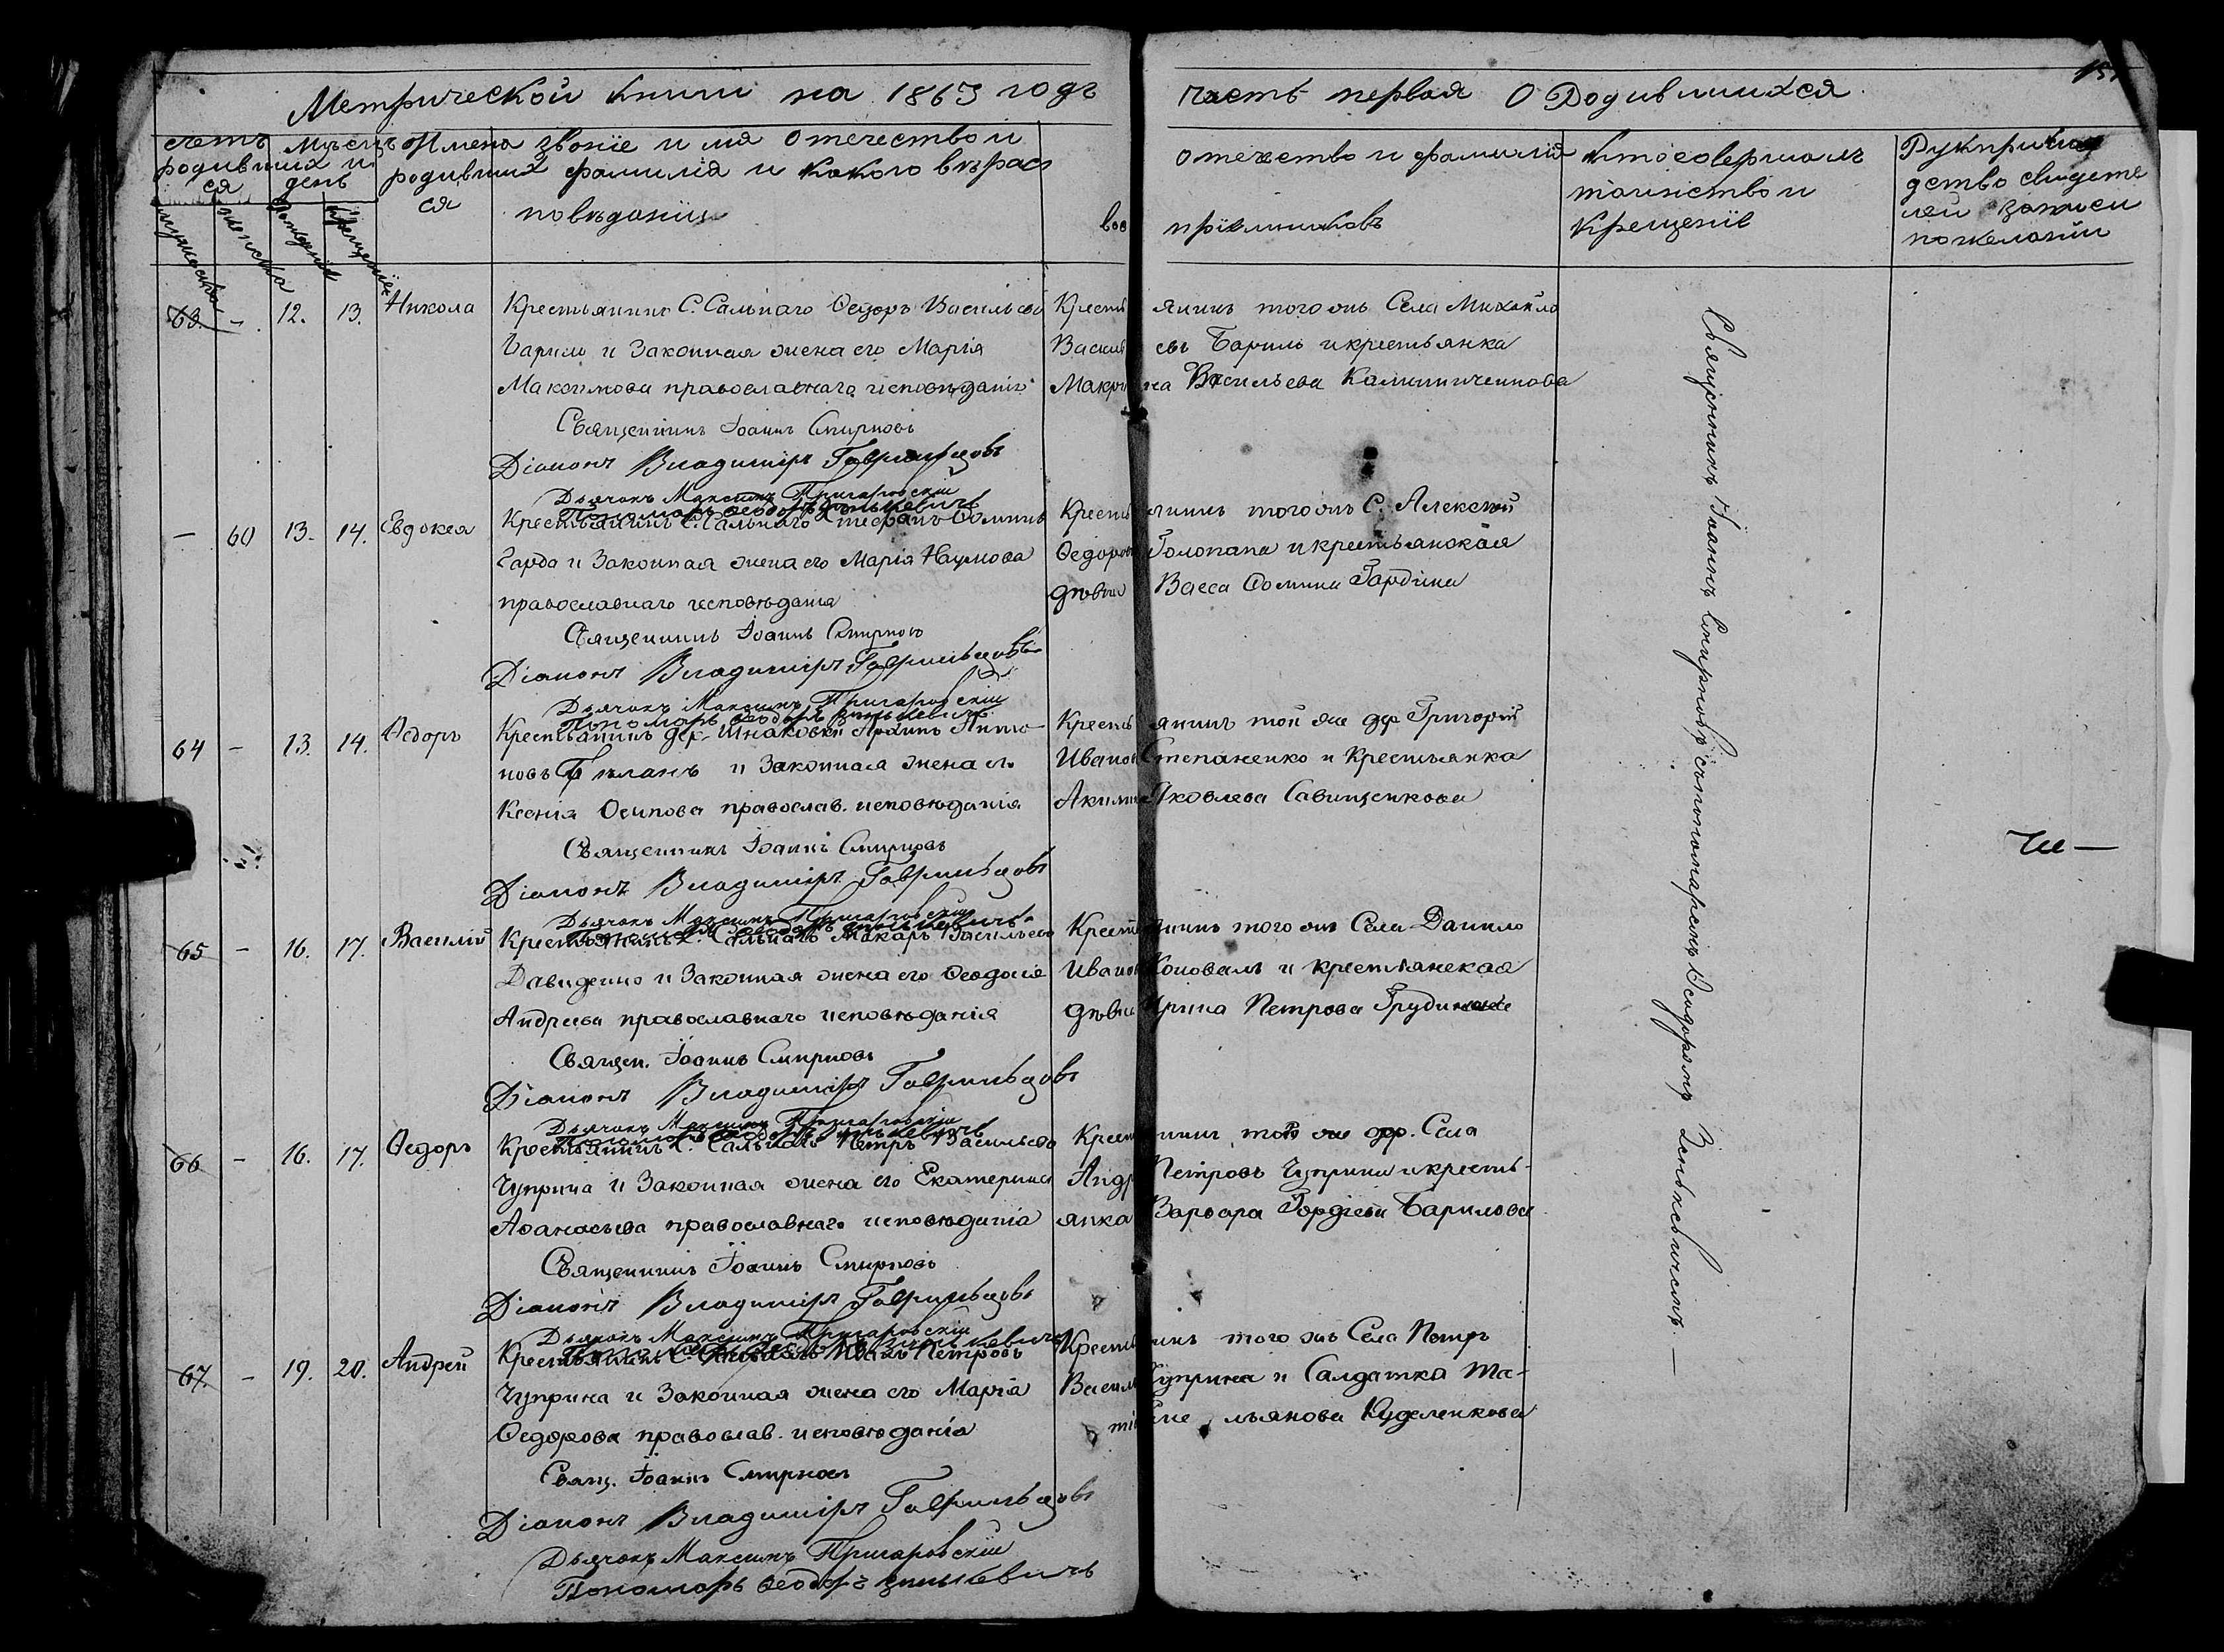 Метрической книги на 1863 годъ
часть первая О Родившихся
счетъ родившихся
мужеска
женска
Мѣсяцъ и день
рожденія
крещенія
Имена родившихся
Званіе имя отечество и
фамилія и какого вѣрас
повѣданія
отечество и фамилія
воспріемниковъ
кто совершалъ
таинство и
крещеніе
Рукприкла
дство свидете
лей записи
по желанію
63. - 12. 13. Никола
Крестьянинъ С. Сальнаго Ѳедоръ Васильевъ
Бариль и Законная жена его Марія
Максимова православнаго исповѣданія
Священникъ Іоаннъ Смирновъ
Діаконъ Владимиръ Гаврильцовъ
Дьячокъ Максимъ Пригаровскій
Пономарь Ѳеодоръ Зинькевичъ
Крестьянинъ того жъ Села Михайло
Васильевъ Бариль и крестьянка
Макрина Васильева Калиниченкова
- 60 13. 14. Евдокея
Крестьянинъ С. Сальнаго Ѳоминъ
Гарда и Законная жена его Марія Наумова
православнаго исповѣданія
Священникъ Іоаннъ Смирновъ
Діаконъ Владимиръ Гаврильцовъ
Дьячокъ Максимъ Пригаровскій
Пономарь Ѳеодоръ Зинькевичъ
Крестьянинъ того жъ С. Алексѣй
Ѳедоровъ Голопапа и крестьянская
дѣвица Васса Ѳомина Гардина
64 - 13. 14. Ѳедоръ
Крестьянинъ дер. Шнаковки Антоновъ
и Законная жена его
Ксенія Осипова православ. исповѣданія
Священникъ Іоаннъ Смирновъ
Діаконъ Владимиръ Гаврильцовъ
Дьячокъ Максимъ Пригаровскій
Крестьянинъ той же дер. Григорій
Ивановъ Степаненко и Крестьянка
Акилина Яковлева Савищенкова
65 - 16. 17. Василій
Крестьянинъ С. Сальнаго Макаръ Васильевъ
Давиденко и Законная жена его Ѳеодосія
Андреева православнаго исповѣданія
Священ. Іоаннъ Смирновъ
Діаконъ Владимиръ Гаврильцовъ
Дьячокъ Максимъ Пригаровскій
Крестьянинъ того жъ Села Данило
Ивановъ Коновалъ и крестьянская
дѣвица Ирина Петрова
66 - 16. 17. Ѳедоръ
Крестьянинъ С. Сальнаго Петръ Васильевъ
Чуприна и Законная жена его Екатерина
Аѳанасьева православнаго исповѣданія
Священникъ Іоаннъ Смирновъ
Діаконъ Владимиръ Гаврильцовъ
Дьячокъ Максимъ Пригаровскій
Пономарь Ѳеодоръ Зинькевичъ
Крестьянинъ Села
Петровъ Чуприна и кресть-
янка Варвара Гордіева Барилова
67. - 19. 20. Андрей
Крестьянинъ С. Петровъ
Чуприна и Законная жена его Марія
Ѳедорова православ. исповѣданія
Свящ. Іоаннъ Смирновъ
Діаконъ Владимиръ Гаврильцовъ
Дьячокъ Максимъ Пригаровскій
Пономарь Ѳеодоръ Зинькевичъ
Крестьянинъ того жъ Села Петръ
Васильевъ Чуприна и Салдатка Та-
Емельянова Куделенкова
Священникъ Іоаннъ Смирновъ съ пономаремъ Ѳеодоромъ Зенькевичемъ. —